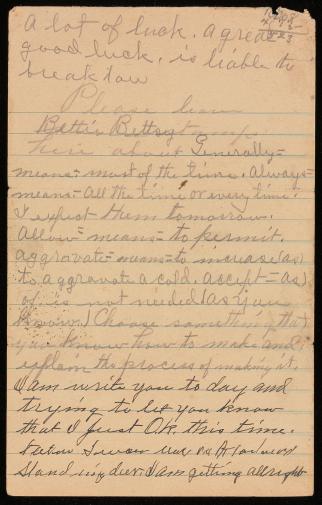 a lot of luck. a great
good luck. is liable to
break low
Please
Bettie Bettsy
here about Generally=
means- most of the time. Always=
means- All the time or every time.
I expect them tomorrow.
allow= means= to permit.
aggravate= means= to increase (as)
to aggravate a cold. accept= as)
of is not needed (as you
know.) Choose something that
you know how to make and
explain the process of making it.
I am write you to day and
trying to let you know
that I just O.k. this time.
I am getting allright